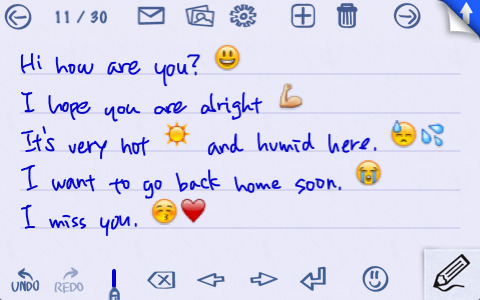 11 / 30
Hi how are you? 😃
I hope you are alright 💪
It's very hot ☀️ and humid here. 😓💦
I want to go back home soon. 😭
I miss you. 😚❤️
UNDO REDO